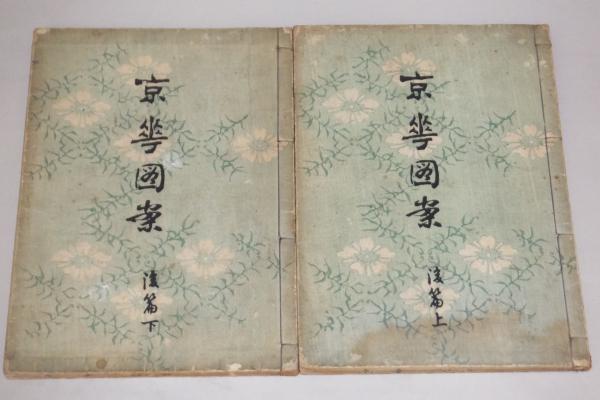 京華図案
後篇上
京華図案
後篇下